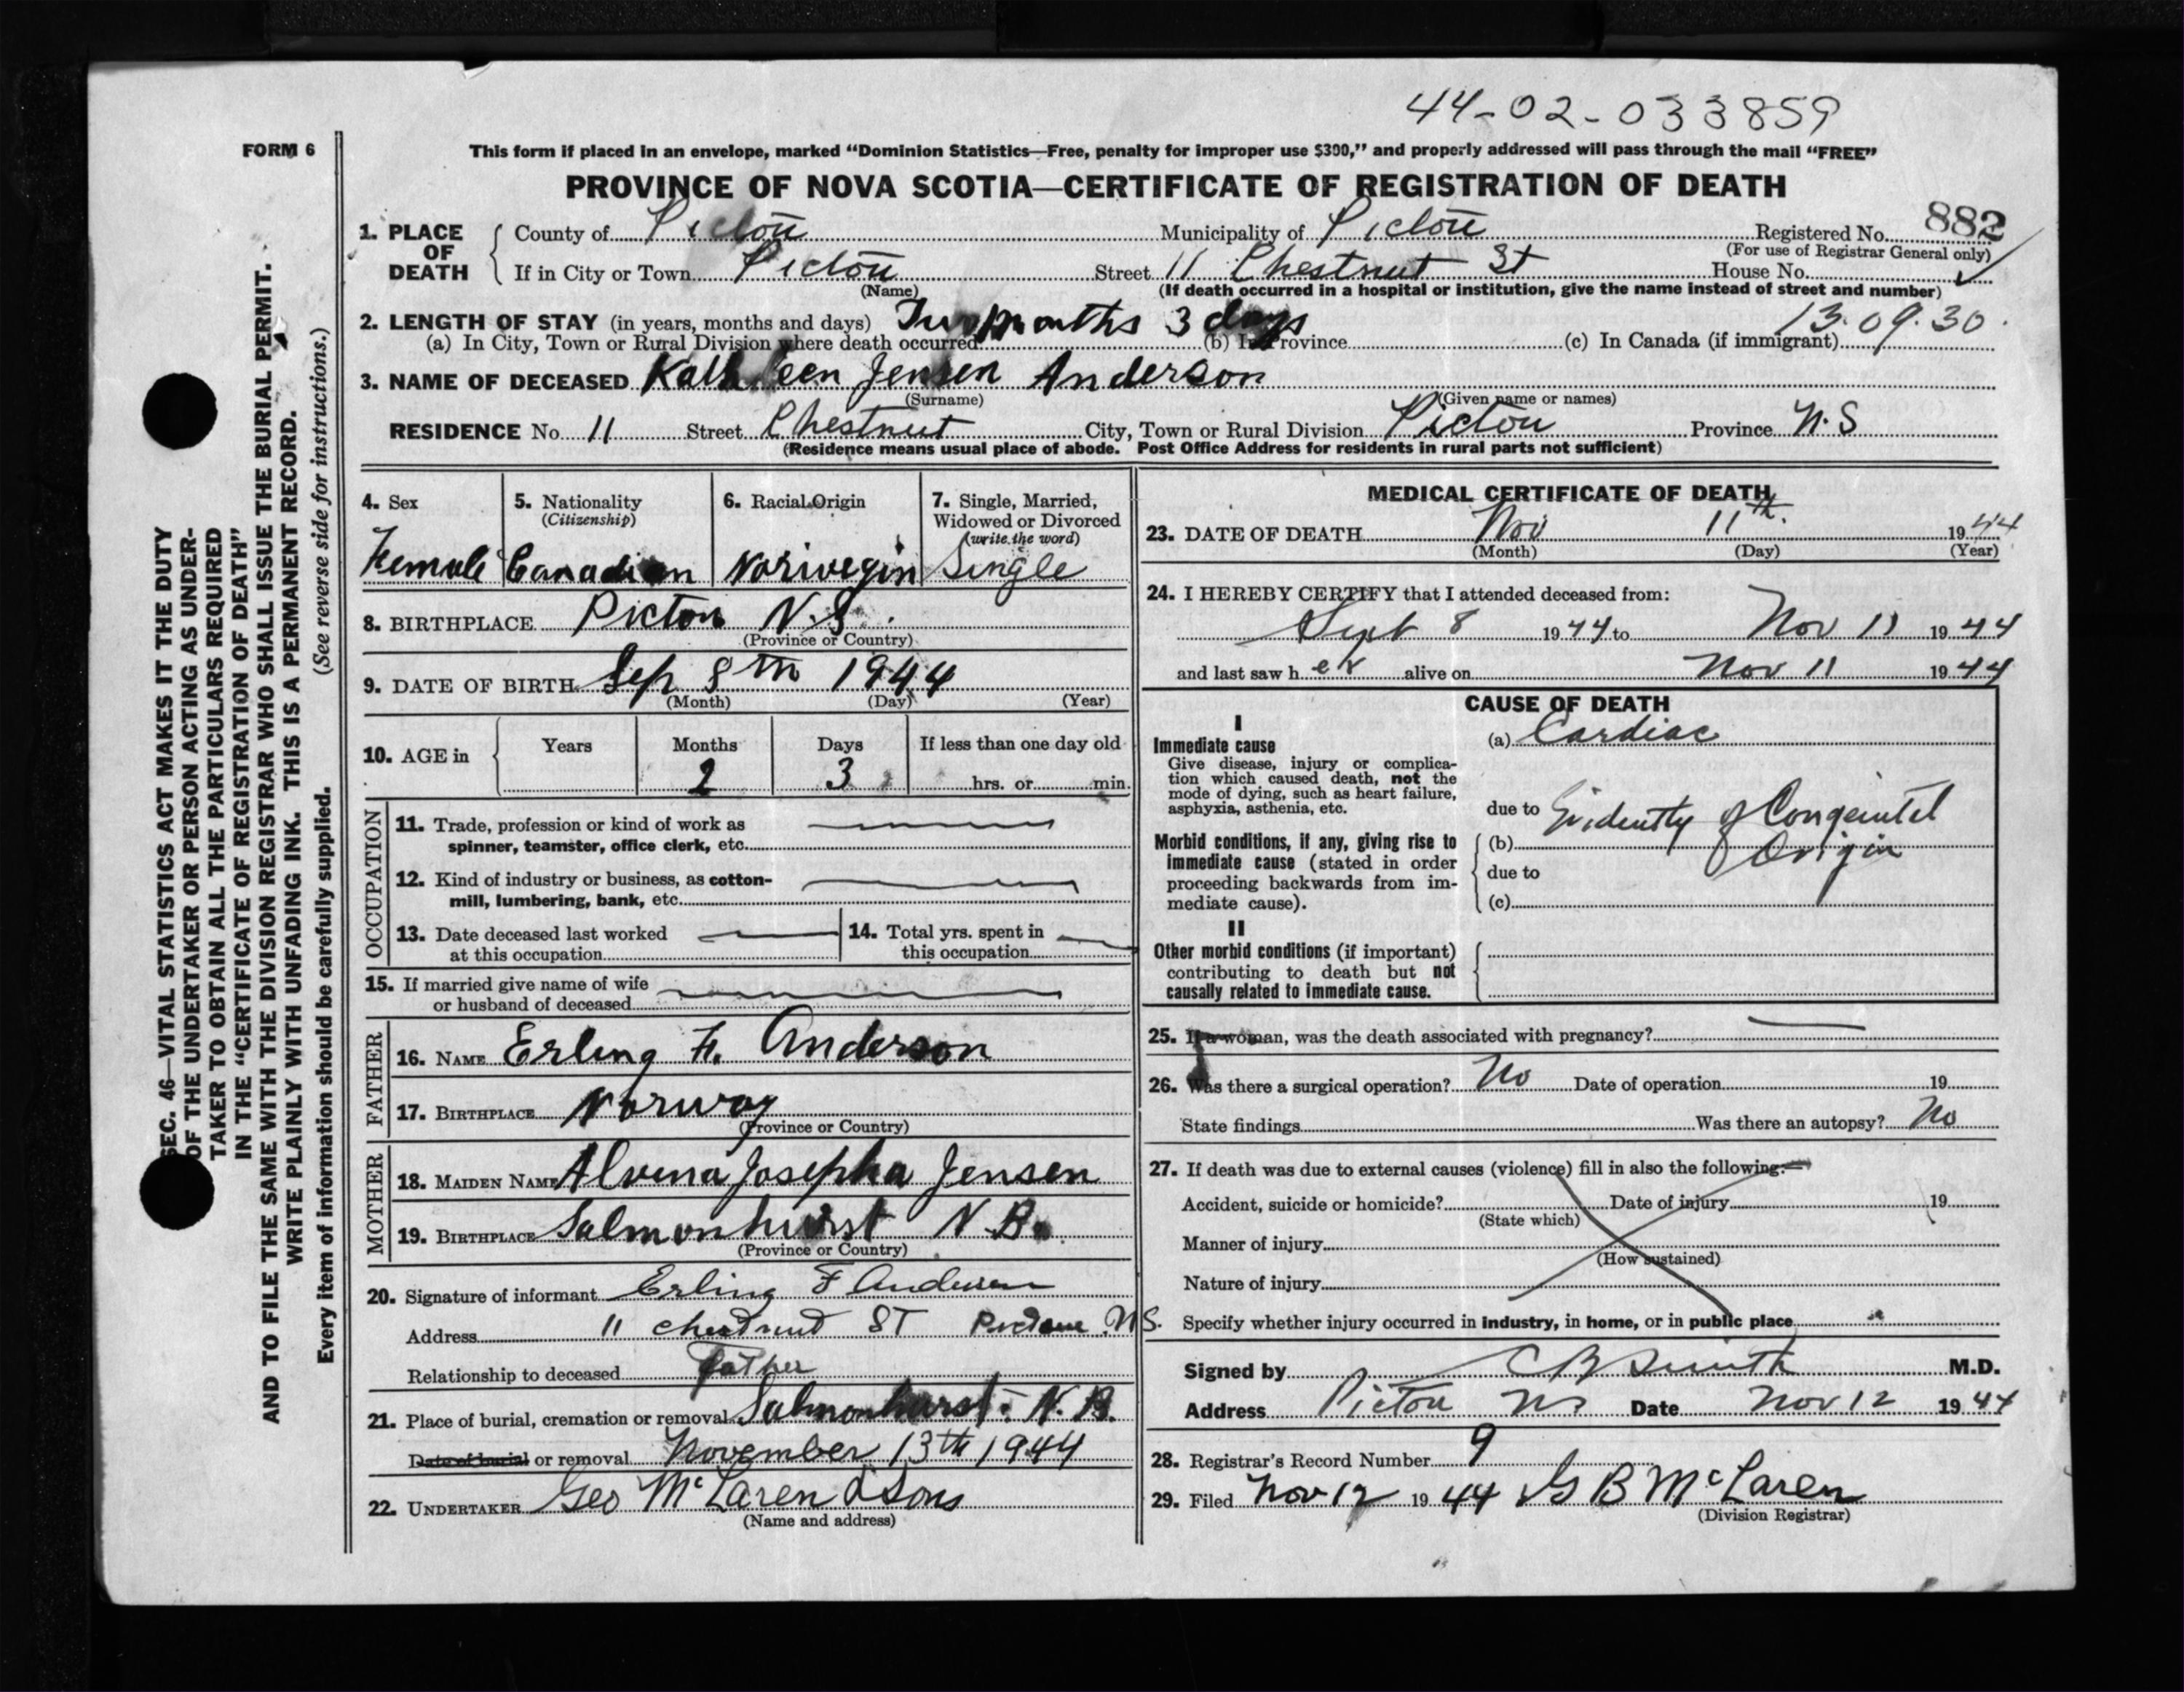 44-02-033859
FORM 6
This form if placed in an envelope, marked “Dominion Statistics—Free, penalty for improper use $300,” and properly addressed will pass through the mail “FREE”
PROVINCE OF NOVA SCOTIA—CERTIFICATE OF REGISTRATION OF DEATH
882
1. PLACE OF DEATH
County of Pictou Municipality of Pictou Registered No.
(For use of Registrar General only)
If in City or Town Pictou Street 11 Chestnut St House No.
(Name) (If death occurred in a hospital or institution, give the name instead of street and number)
2. LENGTH OF STAY (in years, months and days) Two months 3 days 13.09.30.
(a) In City, Town or Rural Division where death occurred (b) In Province (c) In Canada (if immigrant)
3. NAME OF DECEASED Kathleen Jensen Anderson
(Surname) (Given name or names)
RESIDENCE No. 11 Street Chestnut City, Town or Rural Division Pictou Province N.S
(Residence means usual place of abode. Post Office Address for residents in rural parts not sufficient)
4. Sex
Female
5. Nationality
(Citizenship)
Canadian
6. Racial Origin
Norivegin
7. Single, Married,
Widowed or Divorced
(write the word)
Single
8. BIRTHPLACE Pictou N.S.
(Province or Country)
9. DATE OF BIRTH Sep 8th 1944
(Month) (Day) (Year)
10. AGE in
Years Months Days If less than one day old
2 3 hrs. or min.
OCCUPATION
11. Trade, profession or kind of work as
spinner, teamster, office clerk, etc.
12. Kind of industry or business, as cotton-
mill, lumbering, bank, etc.
13. Date deceased last worked
at this occupation
14. Total yrs. spent in
this occupation
15. If married give name of wife
or husband of deceased
FATHER
16. NAME Erling F. Anderson
17. BIRTHPLACE Norway
(Province or Country)
MOTHER
18. MAIDEN NAME Alvina Josepha Jensen
19. BIRTHPLACE Salmonhurst N.B.
(Province or Country)
20. Signature of informant Erling F Andersen
Address 11 Chestnut ST Pictou N.S.
Relationship to deceased Father
21. Place of burial, cremation or removal Salmonhurst. N.B.
Date of burial or removal November 13th 1944
22. UNDERTAKER Geo McLaren & Sons
(Name and address)
MEDICAL CERTIFICATE OF DEATH
23. DATE OF DEATH Nov 11th. 1944
(Month) (Day) (Year)
24. I HEREBY CERTIFY that I attended deceased from:
Sept 8 1944 to Nov 11 1944
and last saw her alive on Nov 11 1944
CAUSE OF DEATH
I
Immediate cause
Give disease, injury or complica-
tion which caused death, not the
mode of dying, such as heart failure,
asphyxia, asthenia, etc.
(a) Cardiac
due to Evidently of Congenital
Morbid conditions, if any, giving rise to
immediate cause (stated in order
proceeding backwards from im-
mediate cause).
(b) Origin
due to
(c)
II
Other morbid conditions (if important)
contributing to death but not
causally related to immediate cause.
25. If a woman, was the death associated with pregnancy?
26. Was there a surgical operation? No Date of operation 19
State findings Was there an autopsy? No
27. If death was due to external causes (violence) fill in also the following:
Accident, suicide or homicide? Date of injury 19
(State which)
Manner of injury
(How sustained)
Nature of injury
Specify whether injury occurred in industry, in home, or in public place
Signed by C B Smith M.D.
Address Pictou NS Date Nov 12 1944
28. Registrar's Record Number 9
29. Filed Nov 12 1944 G B McLaren
(Division Registrar)
SEC. 46—VITAL STATISTICS ACT MAKES IT THE DUTY
OF THE UNDERTAKER OR PERSON ACTING AS UNDER-
TAKER TO OBTAIN ALL THE PARTICULARS REQUIRED
IN THE “CERTIFICATE OF REGISTRATION OF DEATH”
AND TO FILE THE SAME WITH THE DIVISION REGISTRAR WHO SHALL ISSUE THE BURIAL PERMIT.
WRITE PLAINLY WITH UNFADING INK. THIS IS A PERMANENT RECORD.
Every item of information should be carefully supplied. (See reverse side for instructions.)